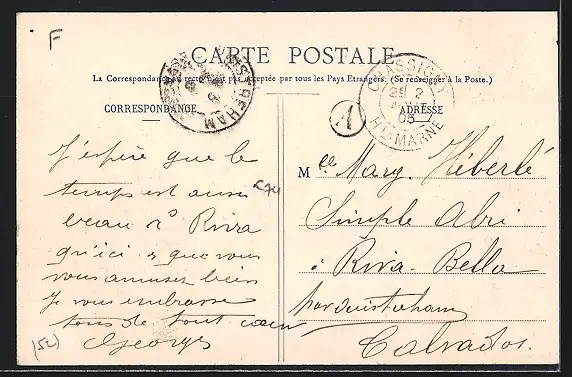 F
CARTE POSTALE
La Correspondance au recto n'est pas acceptée par tous les Pays Etrangers. (Se renseigner à la Poste.)
CORRESPONDANCE
ADRESSE
OUISTREHAM
CHASSIGNY
25 2
05
Hte MARNE
A
J'espère que le
temps est aussi
beau à Riva
qu'ici & que vous
vous amusez bien
Je vous embrasse
tous de tout cœur
Georges
(52)
Mlle Mary. Héberlé
Simple Abri
à Riva-Bella
par Ouistreham
Calvados.